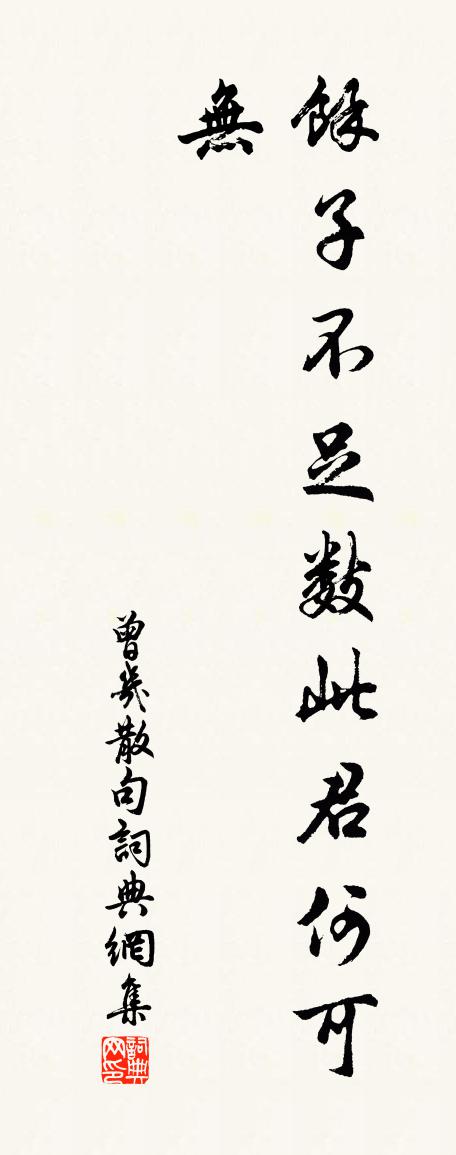 餘子不足数此君何可
無
曾幾散句詞典網集
詞典
网印